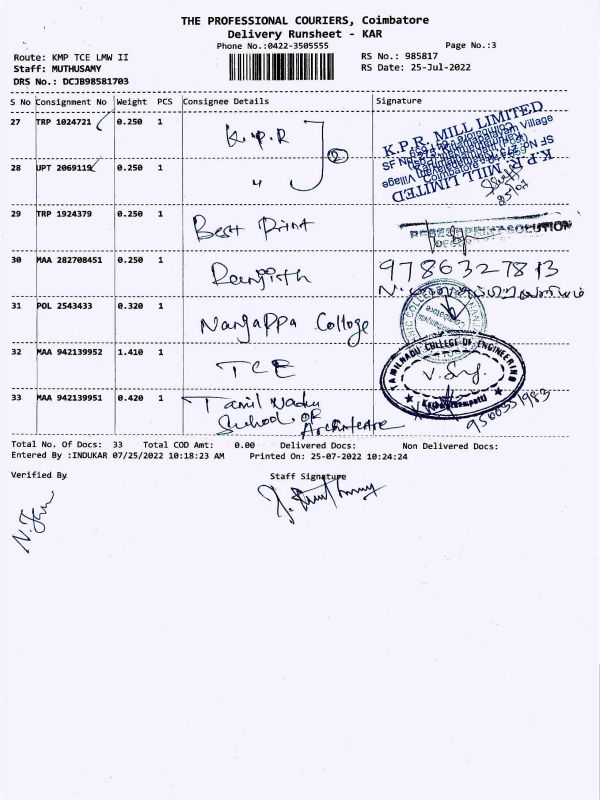 THE PROFESSIONAL COURIERS, Coimbatore
Delivery Runsheet - KAR
Phone No.:0422-3505555
Page No.:3
Route: KMP TCE LMW II
RS No.: 985817
Staff: MUTHUSAMY
RS Date: 25-Jul-2022
DRS No.: DCJB98581703
S No Consignment No Weight PCS Consignee Details Signature
27 TRP 1024721 0.250 1 K.P.R 2
K.P.R. MILL LIMITED
28 UPT 2069119 0.250 1 "
K.P.R. MILL LIMITED
25/07
29 TRP 1924379 0.250 1 Best Print
30 MAA 282708451 0.250 1 Ranjith 9786327813
31 POL 2543433 0.320 1 Nanjappa College
32 MAA 942139952 1.410 1 TCE
TAMILNADU COLLEGE OF ENGINEERING
33 MAA 942139951 0.420 1 Tamil Nadu School of Architecture
9500551983
Total No. Of Docs: 33 Total COD Amt: 0.00 Delivered Docs: Non Delivered Docs:
Entered By :INDUKAR 07/25/2022 10:18:23 AM Printed On: 25-07-2022 10:24:24
Verified By
Staff Signature